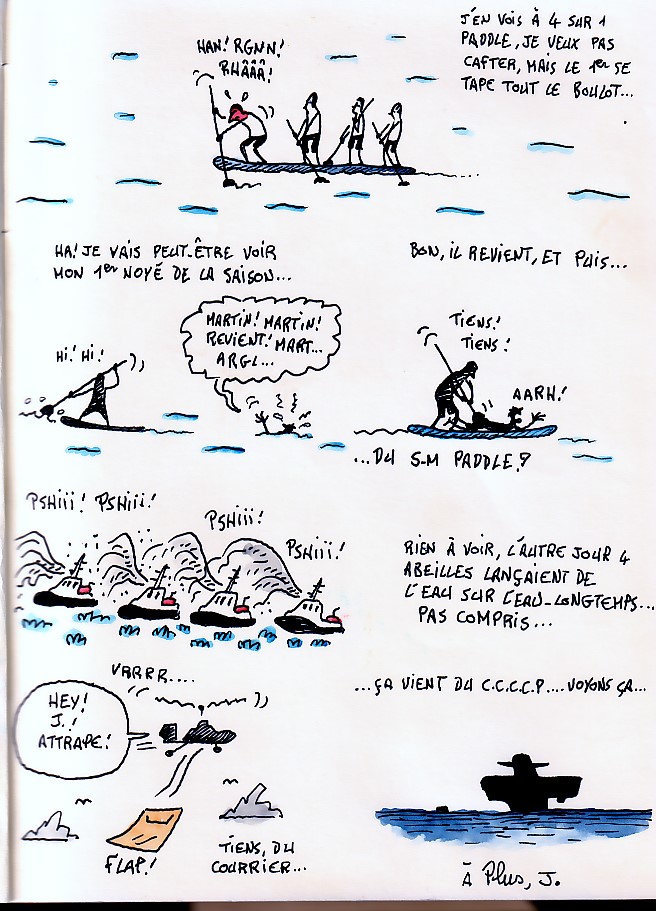 J'EN VOIS À 4 SUR 1
PADDLE, JE VEUX PAS
CAFTER, MAIS LE 1er SE
TAPE TOUT LE BOULOT...
HAN! RGNN!
RHÂÂÂ!
HA! JE VAIS PEUT-ÊTRE VOIR
MON 1er NOYÉ DE LA SAISON...
HI! HI!
MARTIN! MARTIN!
REVIENT! MART...
ARGL...
BON, IL REVIENT, ET PUIS...
TIENS!
TIENS!
AARH!
...DU S-M PADDLE?
PSHIII! PSHIII!
PSHIII!
PSHIII!
RIEN À VOIR, L'AUTRE JOUR 4
ABEILLES LANÇAIENT DE
L'EAU SUR L'EAU-LONGTEMPS...
PAS COMPRIS...
VRRRR....
HEY!
J.!
ATTRAPE!
FLAP!
TIENS, DU
COURRIER...
...ÇA VIENT DU C.C.C.C.P....VOYONS ÇA...
À Plus, J.